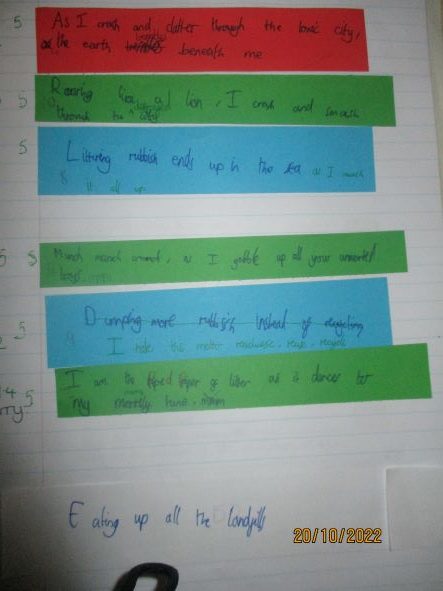 5
As I crash and clatter through the toxic city,
the earth trembles beneath me
5
Roaring like a lion, I crash and smash
through the city
5
Littering rubbish ends up in the sea as I munch
8
it all up
5
Munch munch around, as I gobble up all your unwanted
toys
5
Dumping more rubbish instead of recycling
9
I hate this motor reduce, reuse, recycle
I am the Piper of litter as it dances to
my
tune
my 5
Eating up all the landfills
20/10/2022